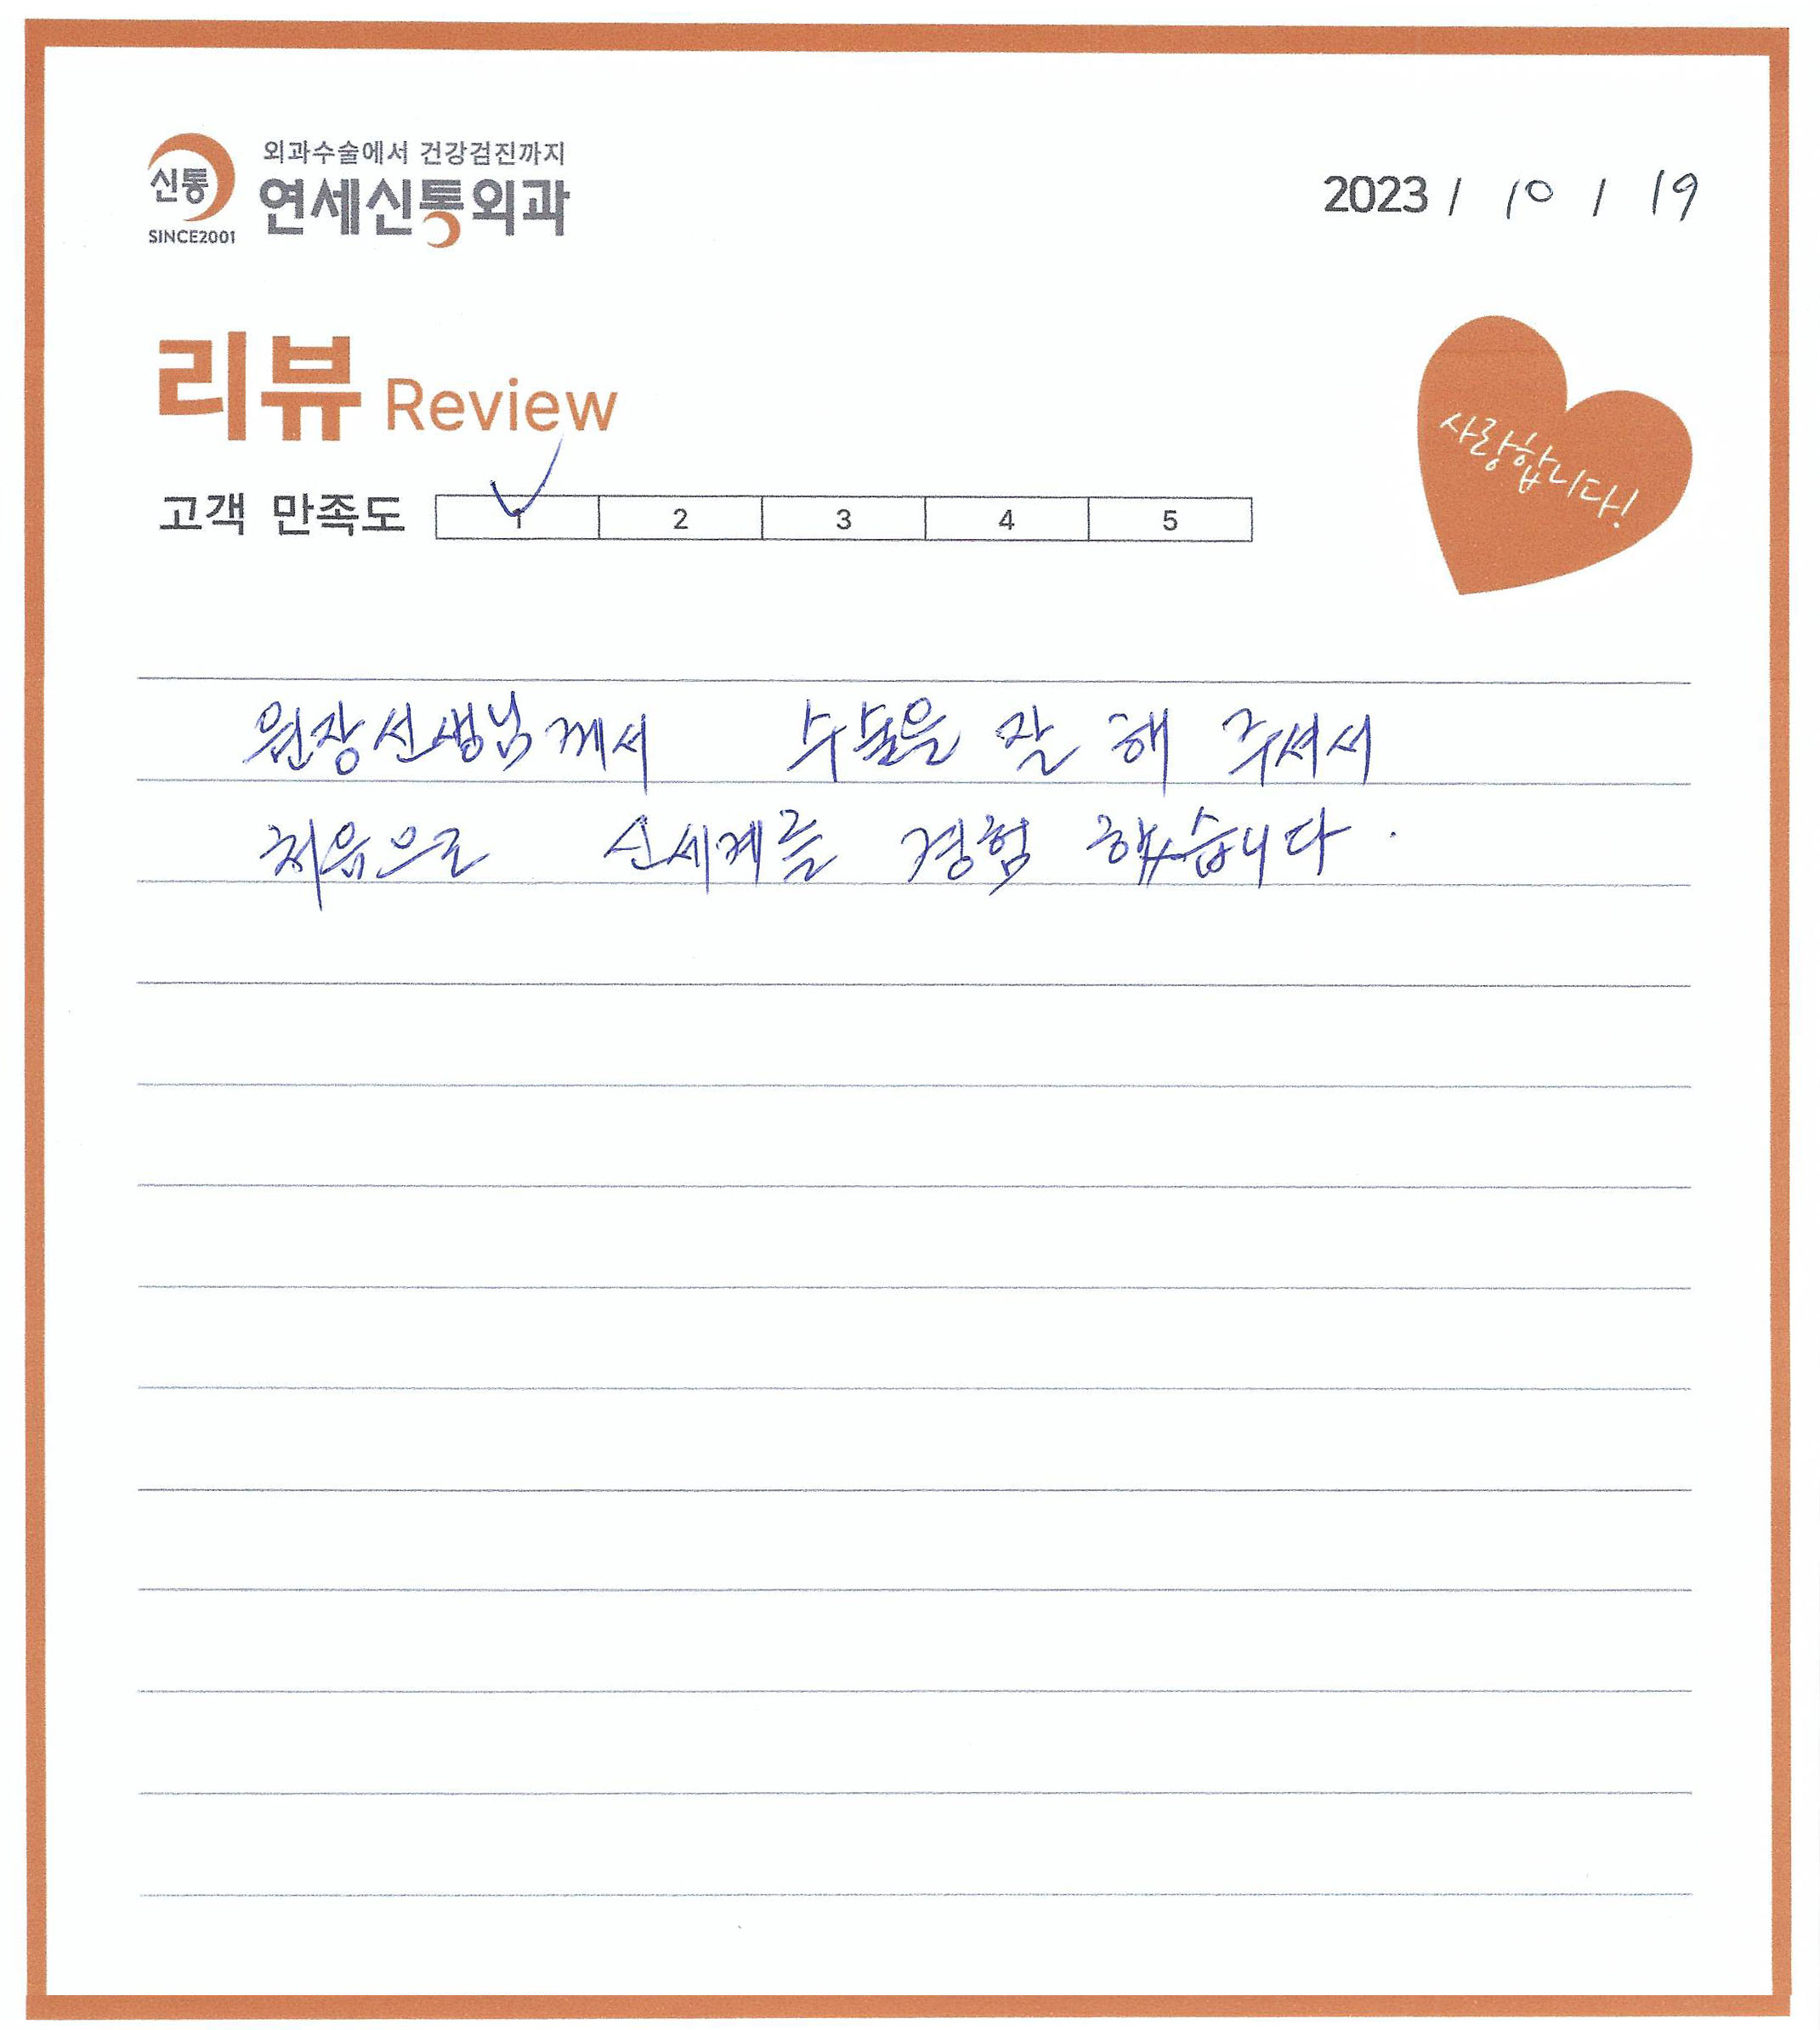 신통
SINCE2001
외과수술에서 건강검진까지
연세신통외과
2023 / 10 / 19
리뷰 Review
사랑합니다!
고객 만족도 1 2 3 4 5
원장선생님께서 수술을 잘 해 주셔서
처음으로 신세계를 경험 했습니다.